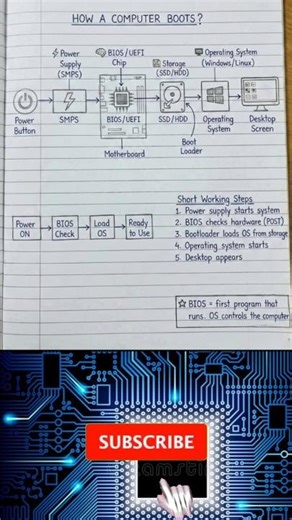 HOW A COMPUTER BOOTS?
Power
Supply
(SMPS)
BIOS/UEFI
Chip
Storage
(SSD/HDD)
Operating System
(Windows/Linux)
Power
Button
SMPS
BIOS/UEFI
SSD/HDD
Operating
System
Desktop
Screen
Boot
Loader
Motherboard
Power
ON
BIOS
Check
Load
OS
Ready
to Use
Short Working Steps
1. Power supply starts system
2. BIOS checks hardware (POST)
3. Bootloader loads OS from storage
4. Operating system starts
5. Desktop appears
☆ BIOS = first program that
runs. OS controls the computer
SUBSCRIBE